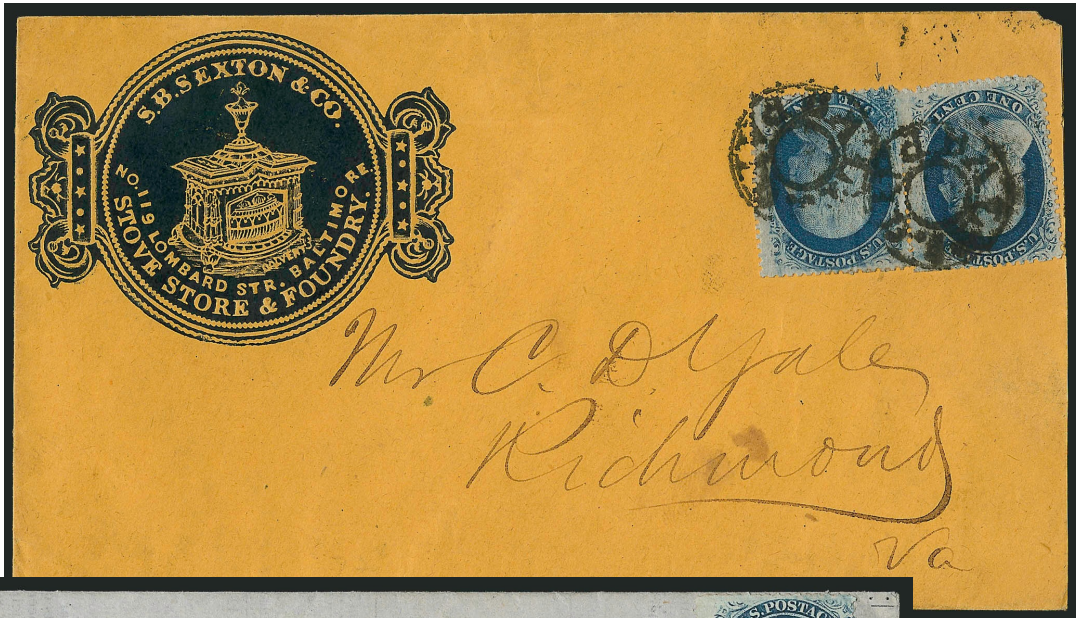 S.B. SEXTON & CO.
NO. 119 LOMBARD STR. BALTIMORE
STOVE STORE & FOUNDRY.
ONE CENT
U.S. POSTAGE
ONE CENT
U.S. POSTAGE
Mr C. D. Yale
Richmond
Va
S. POSTAG